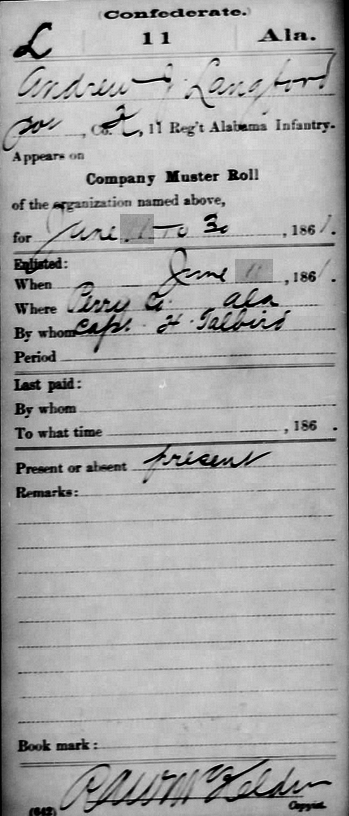 (Confederate.)
L 11 Ala.
Andrew J Langford
, Co. , 11 Reg't Alabama Infantry.
Appears on
Company Muster Roll
of the organization named above,
for June 11 to 30, 1861.
Enlisted:
When June 11, 1861.
Where Perry Co. Ala
By whom Capt. H. Talbird
Period
Last paid:
By whom
To what time , 186 .
Present or absent present
Remarks:
Book mark:
(642) Copyist.